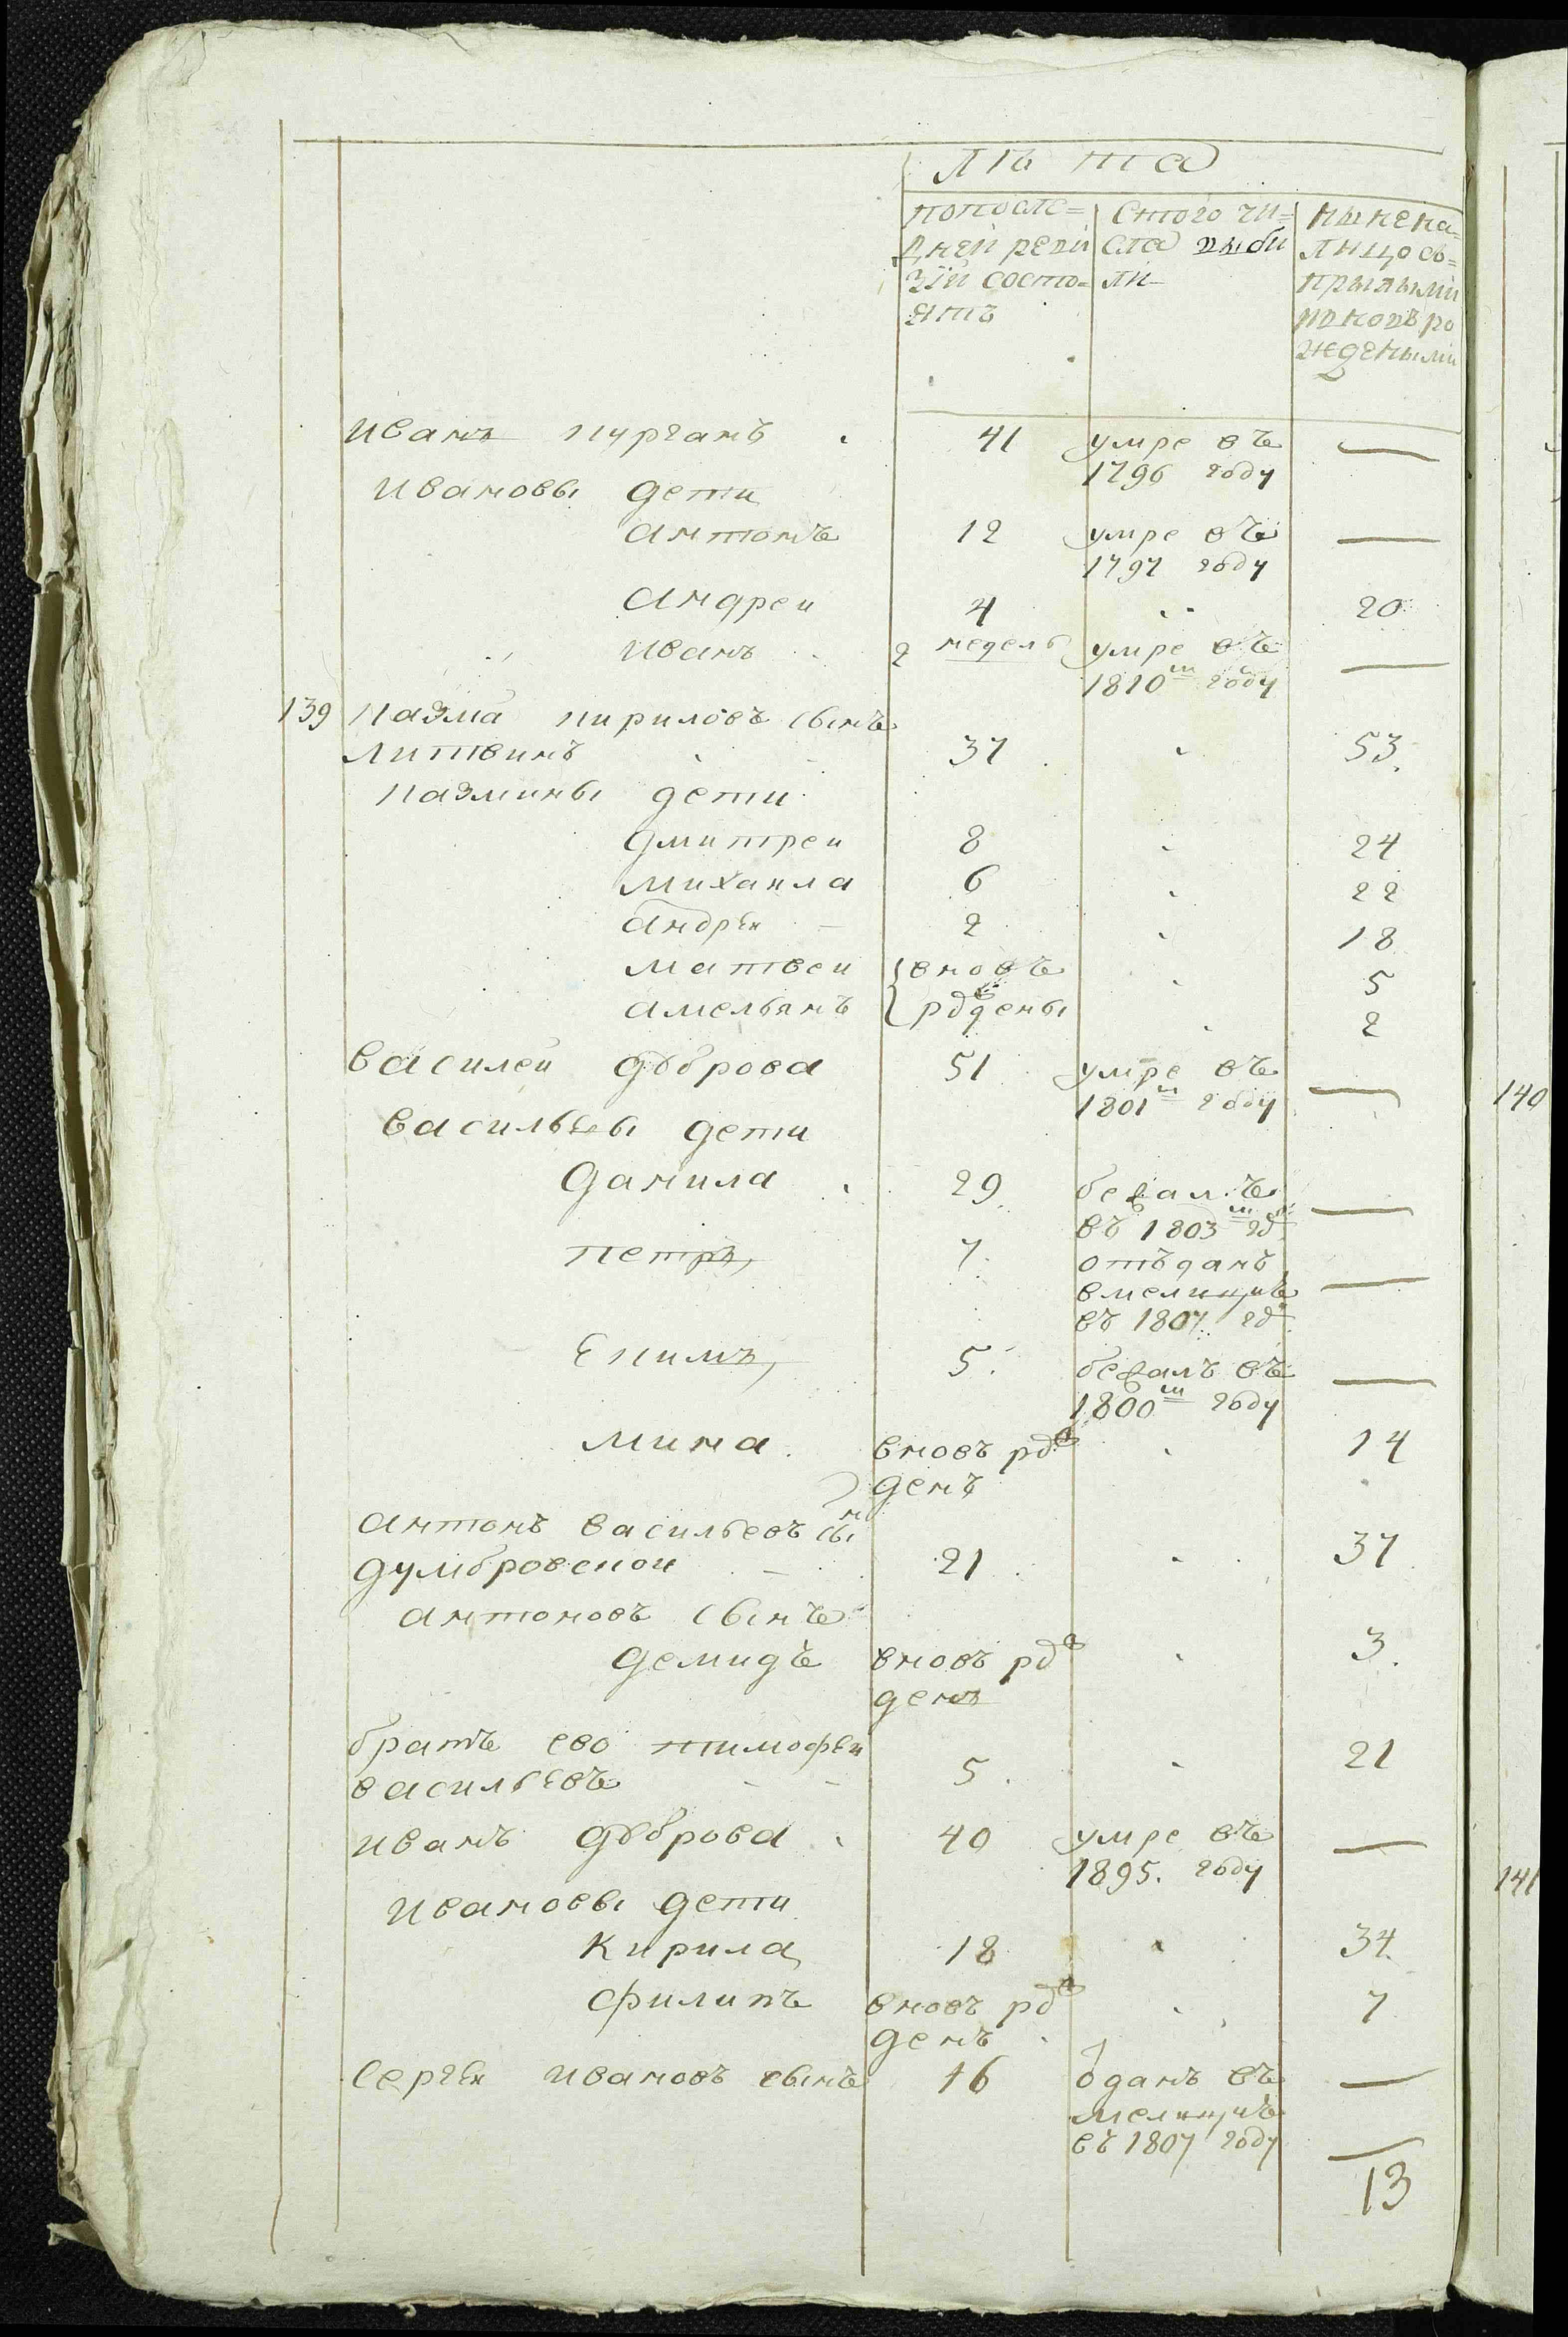 лѣта
попосле=
дней реви
зiи состо=
ятъ
стого чи=
сла выбы
ли
ныне на=
лицо съ=
прылыми
и вновь ро
ждеными
Иванъ Курганъ 41 умре въ —
1796 году
Ивановы дети
Антонъ 12 умре въ —
1797 году
Андреи 4 20
Иванъ 2 недели умре въ —
1810м году
139 Казма Кириловъ сынъ
Литвинъ 37 53
Казмины дети
Дмитреи 8 24
Михаила 6 22
Андреи 2 18
Матвеи вновь 5
Амельянъ рождены 2
Василеи Доброва 51 умре въ —
1801м году
Васильевы дети
Данила 29 бежалъ —
въ 1803м гд
Петръ 7 отъданъ
вмелицию —
въ 1807 гд
Екимъ 5 бежалъ въ —
1800м году
Мина вновь рож 14
денъ
Антонъ Васильевъ сын
Думбровской 21 37
Антоновъ сынъ
Демидъ вновь рож 3
денъ
братъ ево Тимофеи
Васильевъ 5 21
Иванъ Доброва 40 умре въ —
1895. году
Ивановы дети
Кирила 18 34
Филипъ вновь рож 7
денъ
Сергеи Ивановъ сынъ 16 отданъ въ —
мелицию
въ 1807 году
13
140
141